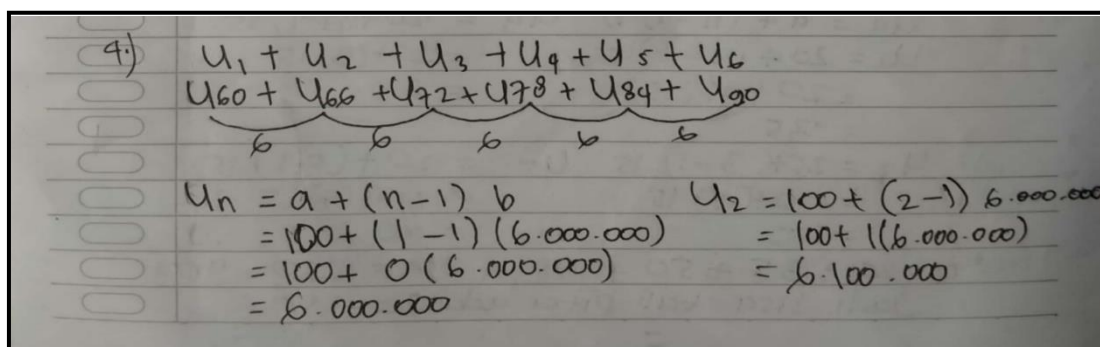 4.) U1 + U2 + U3 + U4 + U5 + U6
U60 + U66 + U72 + U78 + U84 + U90
6 6 6 6 6
Un = a + (n-1) b
= 100 + (1-1) (6.000.000)
= 100 + 0 (6.000.000)
= 6.000.000
U2 = 100 + (2-1) 6.000.000
= 100 + 1(6.000.000)
= 6.100.000